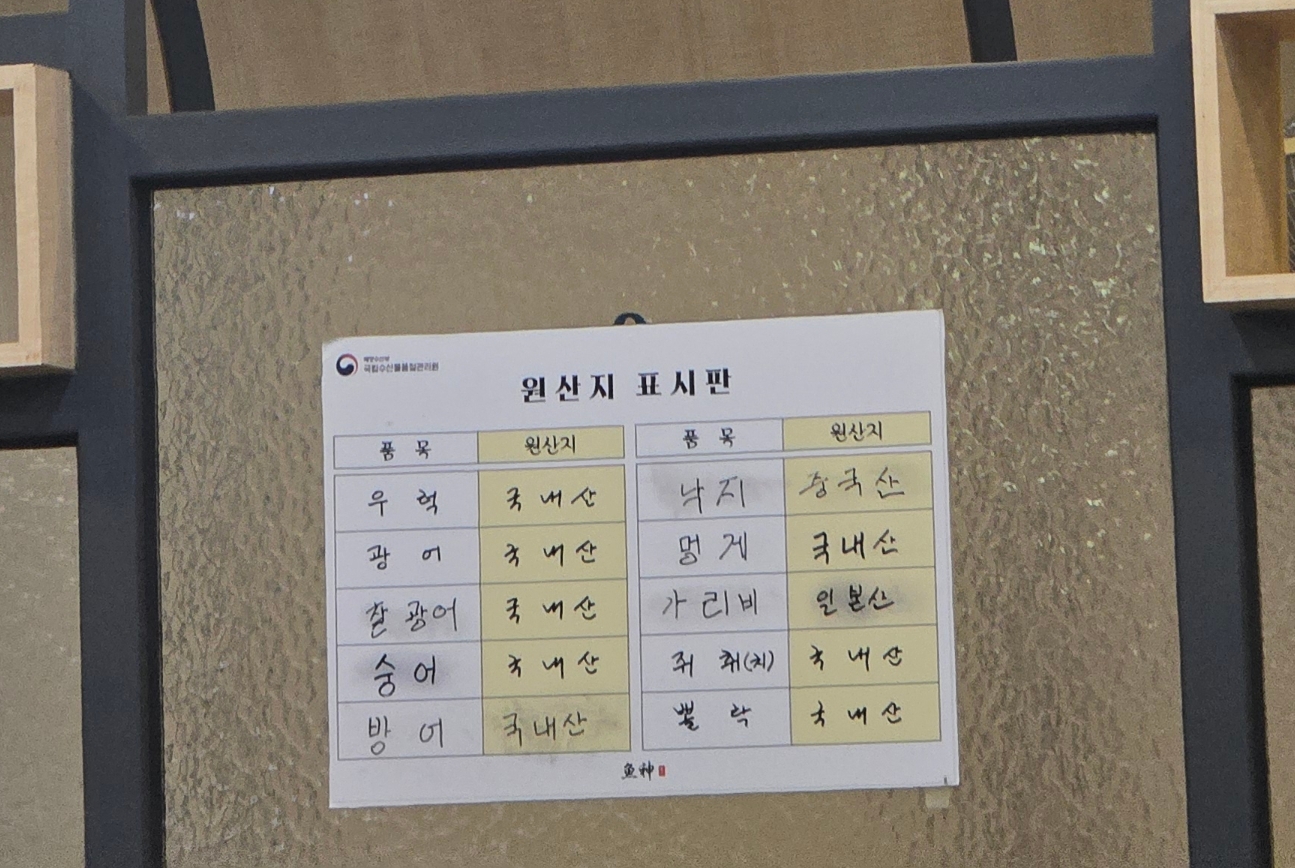 해양수산부
국립수산물품질관리원
원산지 표시판
품 목 원산지 품 목 원산지
우 럭 국내산 낙지 중국산
광 어 국내산 멍게 국내산
찰광어 국내산 가리비 일본산
숭어 국내산 쥐 취(치) 국내산
방 어 국내산 뽈 락 국내산
魚神